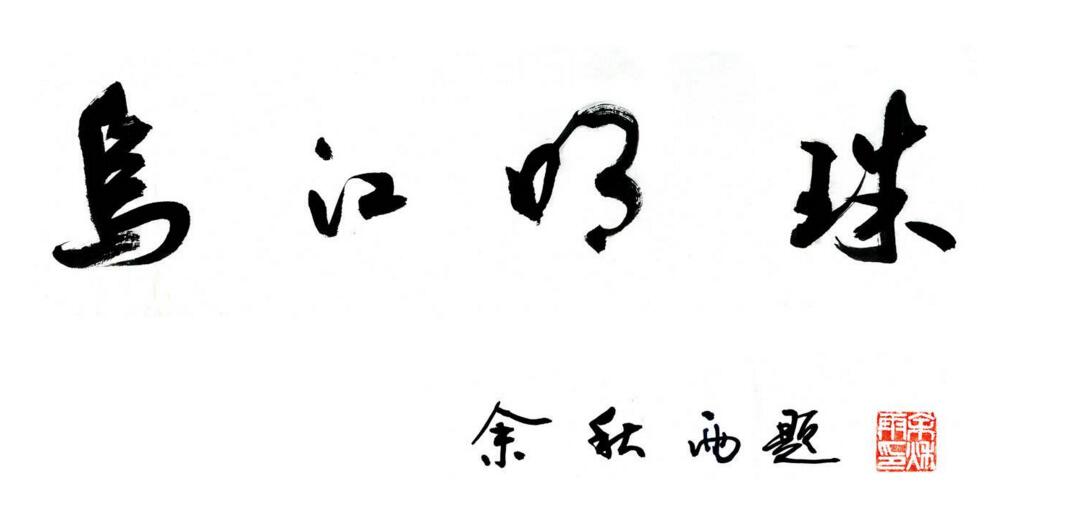 乌江明珠
余秋雨题
余秋雨印